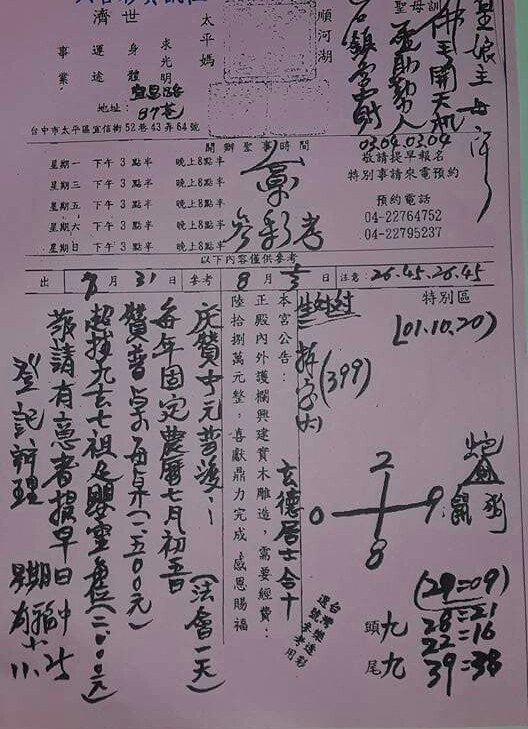 順河湖
太平媽
世
濟
求光明
身體
運途
事業
地址:
87巷
台中市太平區宜信街52巷43弄64號
聖母訓
佛主開天机
03.04.03.04
敬請提早報名
特別事請來電預約
預約電話
04-22764752
04-22795237
開辦聖事時間
星期一 下午3點半 晚上8點半
星期三 下午3點半 晚上8點半
星期五 下午3點半 晚上8點半
星期六 下午3點半 晚上8點半
星期日 下午3點半 晚上8點半
參彩考
以下內容僅供參考
出 8月31日 參考 8月 日 注意: 26.45.26.45
特別區
(01.10.20)
(399)
本宮公告:
正殿內外護欄興建實木雕造,需要經費:
陸拾捌萬元整,喜獻鼎力完成,感恩賜福
玄德居士合十
慶贊中元普渡
(法會一天)
每年固定農曆七月初五日
贊普桌每桌(二五00元)
超拔九玄七祖及嬰靈每位(二000元)
敬請有意者提早日
登記辦理
2
0 9
8
蛇
鼠
(29=09)
28=21
22=16
39=38
頭九
尾九
台灣樂透彩
選號參考用
11.25